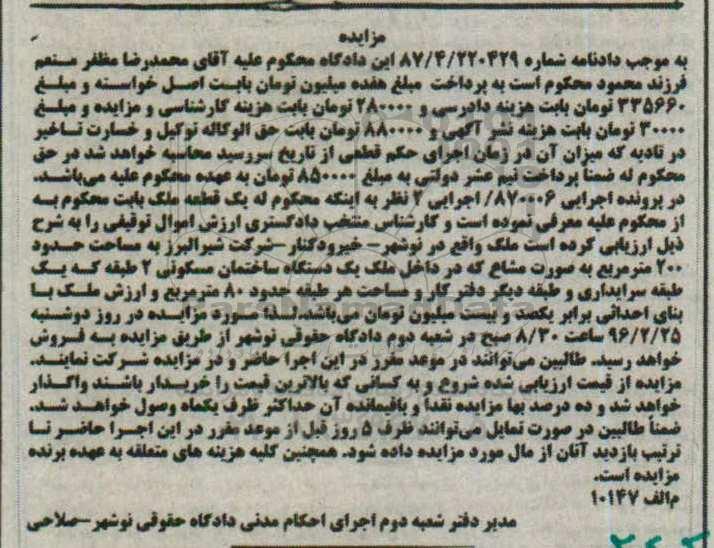 مزایده
به موجب دادنامه شماره ۸۷/۴/۲۲۰۴۲۹ این دادگاه محکوم علیه آقای محمدرضا مظفر منعم
فرزند محمود محکوم است به پرداخت مبلغ هفده میلیون تومان بابت اصل خواسته و مبلغ
۳۳۵۶۶۰ تومان بابت هزینه دادرسی و ۲۸۰۰۰۰ تومان بابت هزینه کارشناسی و مزایده و مبلغ
۳۰۰۰۰ تومان بابت هزینه نشر آگهی و ۸۸۰۰۰۰ تومان بابت حق الوکاله توکیل و خسارت تاخیر
در تادیه که میزان آن در زمان اجرای حکم قطعی از تاریخ سررسید محاسبه خواهد شد در حق
محکوم له ضمناً پرداخت نیم عشر دولتی به مبلغ ۸۵۰۰۰۰ تومان به عهده محکوم علیه می‌باشد.
در پرونده اجرایی ۸۷۰۰۰۶/ اجرایی ۲ نظر به اینکه محکوم له یک قطعه ملک بابت محکوم به
از محکوم علیه معرفی نموده است و کارشناس منتخب دادگستری ارزش اموال توقیفی را به شرح
ذیل ارزیابی کرده است ملک واقع در نوشهر– خیرودکنار–شرکت شیرالبرز به مساحت حدود
۲۰۰ مترمربع به صورت مشاع که در داخل ملک یک دستگاه ساختمان مسکونی ۲ طبقه که یک
طبقه سرایداری و طبقه دیگر دفتر کار و مساحت هر طبقه حدود ۸۰ مترمربع و ارزش ملک با
بنای احداثی برابر یکصد و بیست میلیون تومان می‌باشد.لذا مورد مزایده در روز دوشنبه
۹۶/۲/۲۵ ساعت ۸/۳۰ صبح در شعبه دوم دادگاه حقوقی نوشهر از طریق مزایده به فروش
خواهد رسید. طالبین می‌توانند در موعد مقرر در این اجرا حاضر و در مزایده شرکت نمایند.
مزایده از قیمت ارزیابی شده شروع و به کسانی که بالاترین قیمت را خریدار باشند واگذار
خواهد شد و ده درصد بها مزایده نقداً و باقیمانده آن حداکثر ظرف یکماه وصول خواهد شد.
ضمناً طالبین در صورت تمایل می‌توانند ظرف ۵ روز قبل از موعد مقرر در این اجرا حاضر تا
ترتیب بازدید آنان از مال مورد مزایده داده شود. همچنین کلیه هزینه های متعلقه به عهده برنده
مزایده است.
م‌الف ۱۰۱۴۷
مدیر دفتر شعبه دوم اجرای احکام مدنی دادگاه حقوقی نوشهر–صلاحی